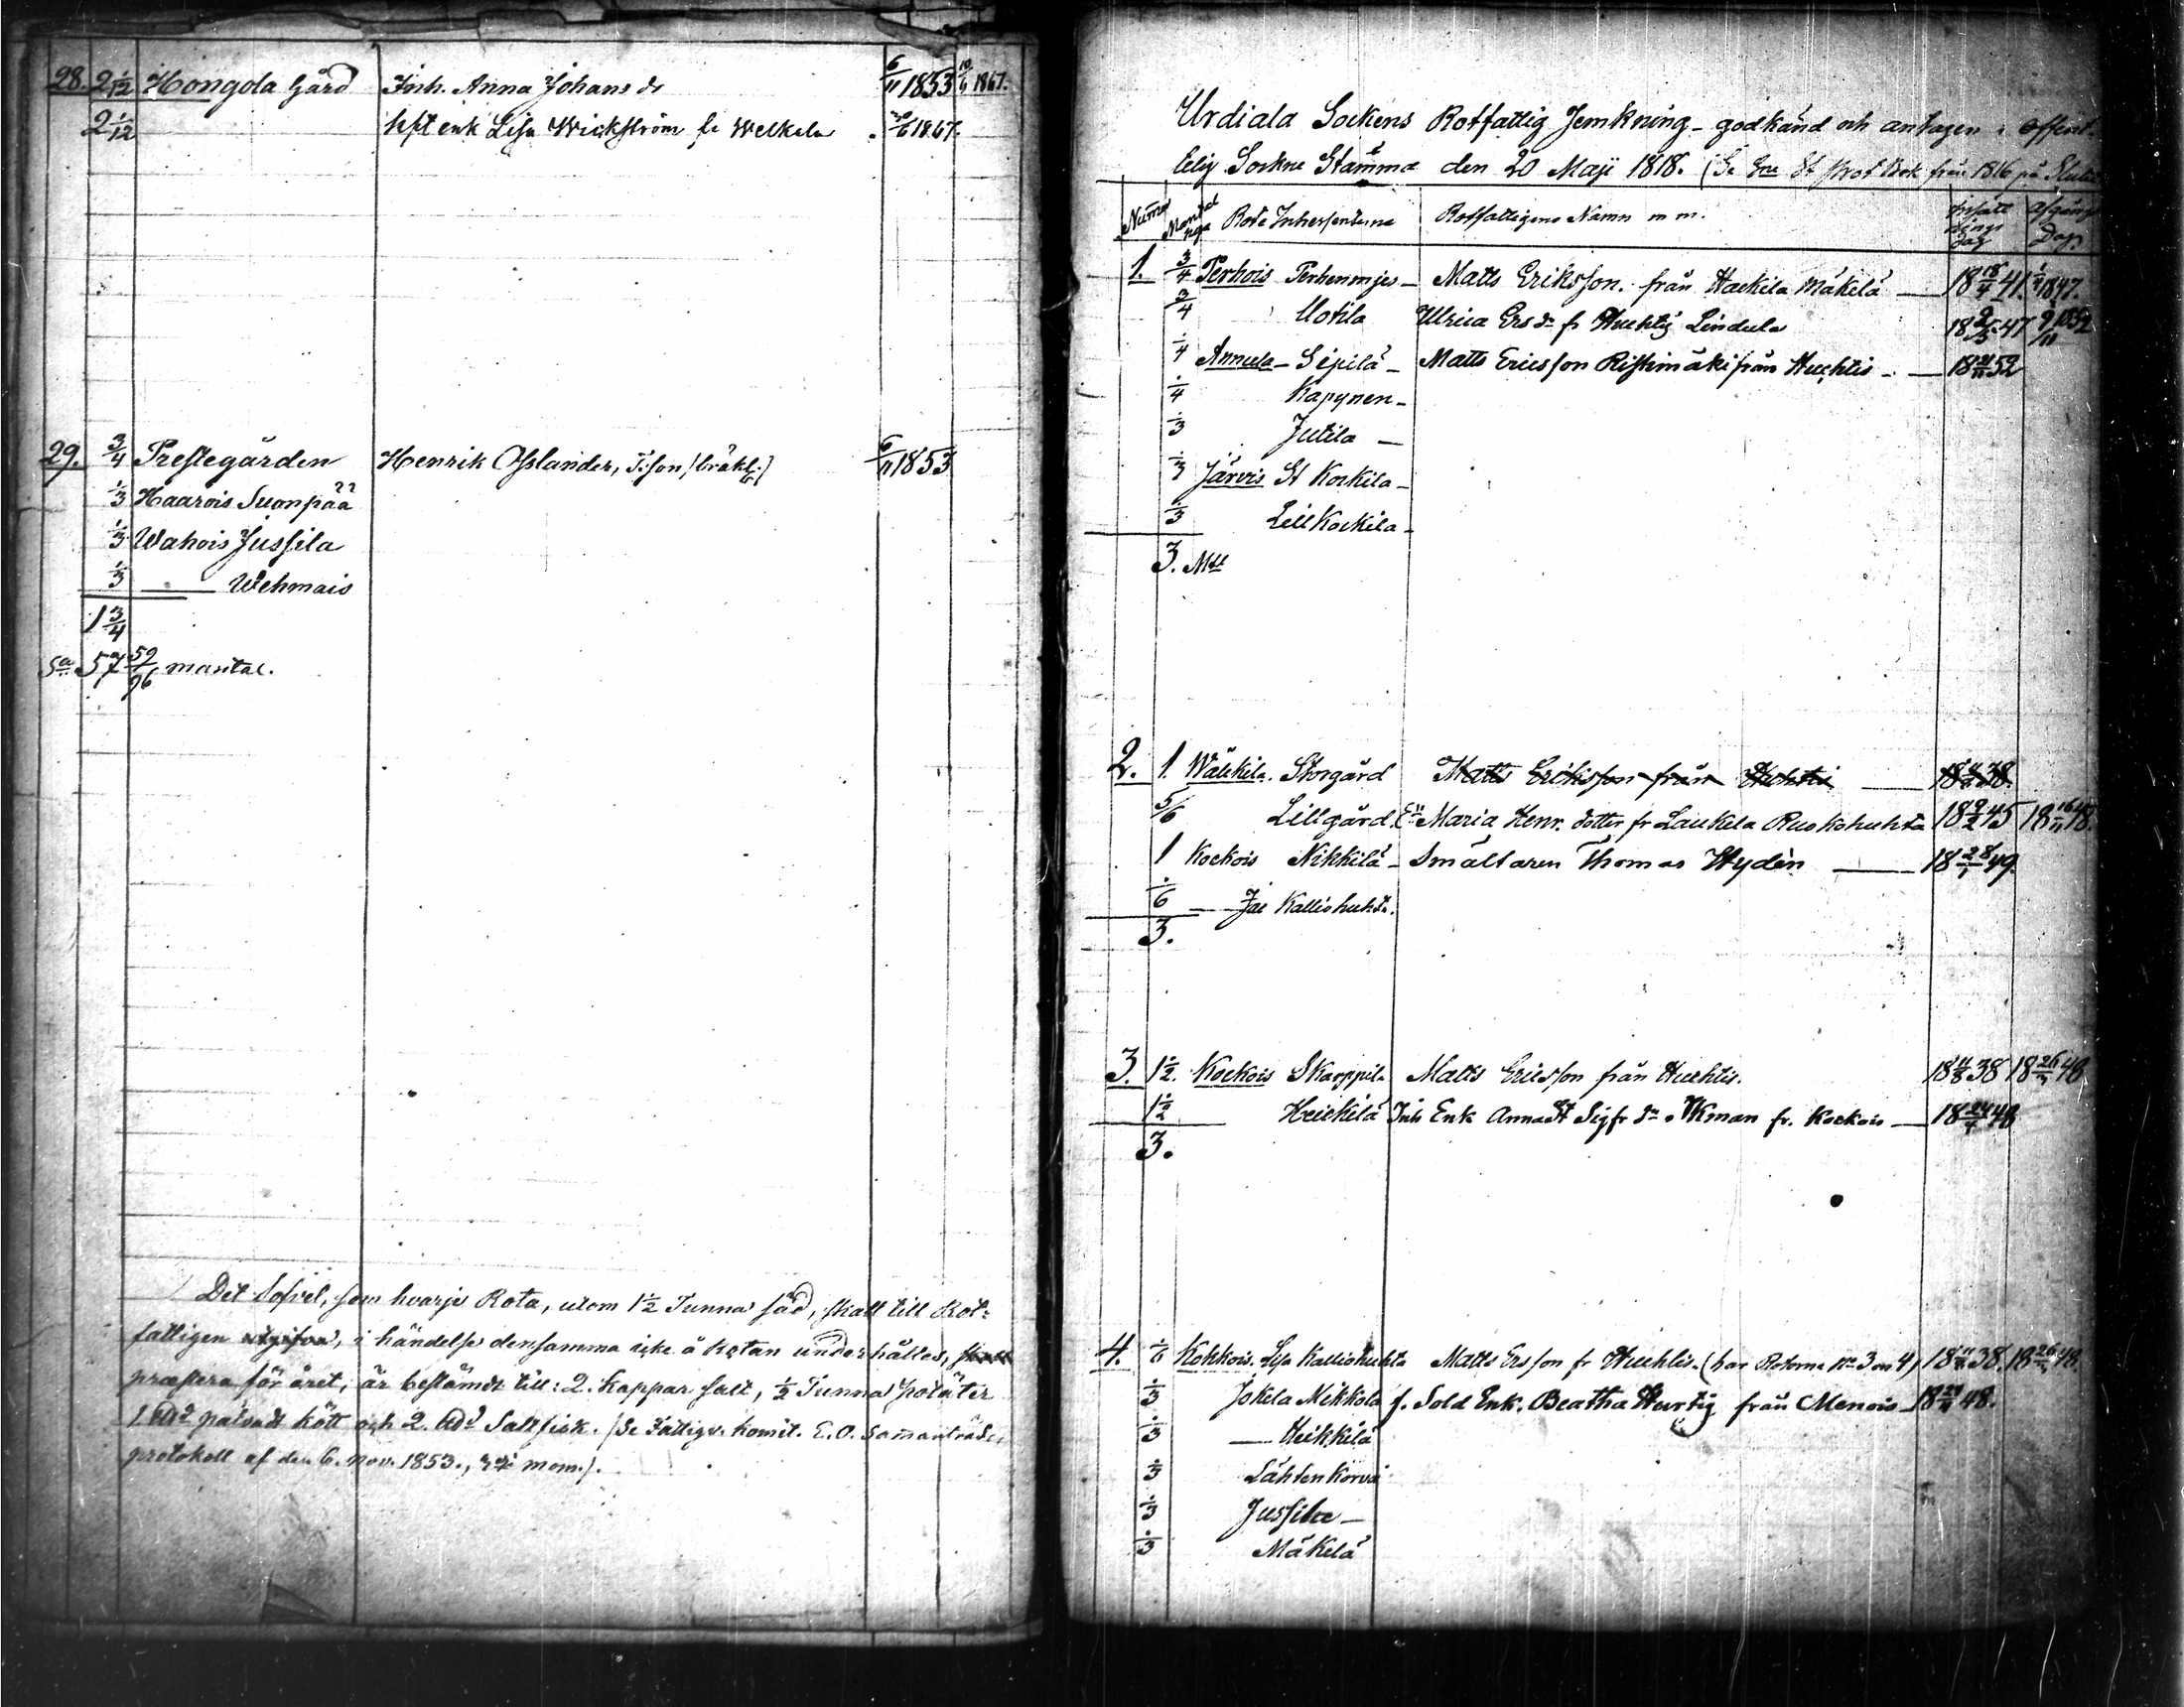 28. 2 1/12 Hongola Gård Inh. Anna Johans dr 6/11 1853 10/6 1867.
2 1/12 enk Lisa Wickström fr Welkela 1867.
29. 3/4 Prestegården Henrik Osslander, T:son, (bräkl:) 6/11 1853
1/3 Haarois Suonpää
1/3 Wahois Jussila
1/3 — Wehmais
1 3/4
Sa 57 59/96 mantal.
Det Sofvel, som hvarje Rota, utom 1 1/2 Tunna säd, skall till Rot-
fattigen, i händelse densamma icke å Rotan underhålles,
præstera för året, är bestämdt till: 2. kappar salt, 1/2 Tunna potäter
1. palvadt kött och 2. Saltfisk. (Se Fattigv. komit. E.O. Samanträdes
protokoll af den 6. nov. 1853., mom.).
Urdiala Sockens Rotfattig Jemkning - godkänd och antagen i offent-
elig Sockne Stämma den 20 Maji 1818. (Se Prot Bok från 1816 på Slutet
Numer Mantal Rote Inhessenderne Rotfattigens Namn m m. Dag Afgångs Dag
1. 3/4 Perhois Perhenmjes — Matts Eriksson. från Hackila Mäkelä — 18 18/4 41. 1847.
3/4 Uotila Ulrica Ers dr fr Huchtis Lindula 18 47
1/4 Annula — Sipilä — Matts Ericsson Ristimäki från Huchtis — 18 52
1/4 Kapynen —
1/3 Jutila —
1/3 Järvis St Kockila —
1/3 Lill Kockila —
3. Mtl
2. 1. Wälkilä. Storgård Matts Eriksson från Huhtis — 18 38.
5/6 Lillgård. Maria Henr. dotter fr Laukela Ruokohuhta 18 9/2 45 18 16/11 48.
1 Kockois Nikkilä — Smältaren Thomas Hydèn — 18 49.
1/6 — Kalliohuhta.
3.
3. 1 1/2. Kockois Skarppila Matts Ericsson från Huchtis. 18 38 18 48
1 1/2 Heickilä Inh Enk Anna St Sigfr dr Åkman fr. Kockois — 18 48
3.
4. 1/6 Kokkois. Lisa Kalliohuhta Matts Ersson fr Huchtis. (har Roterne No 3 och 4) 18 38. 18 48.
1/3 Jokela Mikkola f. Sold Enk. Beatha Hurtig från Menois — 18 48.
1/3 — Heikkilä
1/3 Lähtenkorva
1/3 Jussila —
1/3 Mäkelä